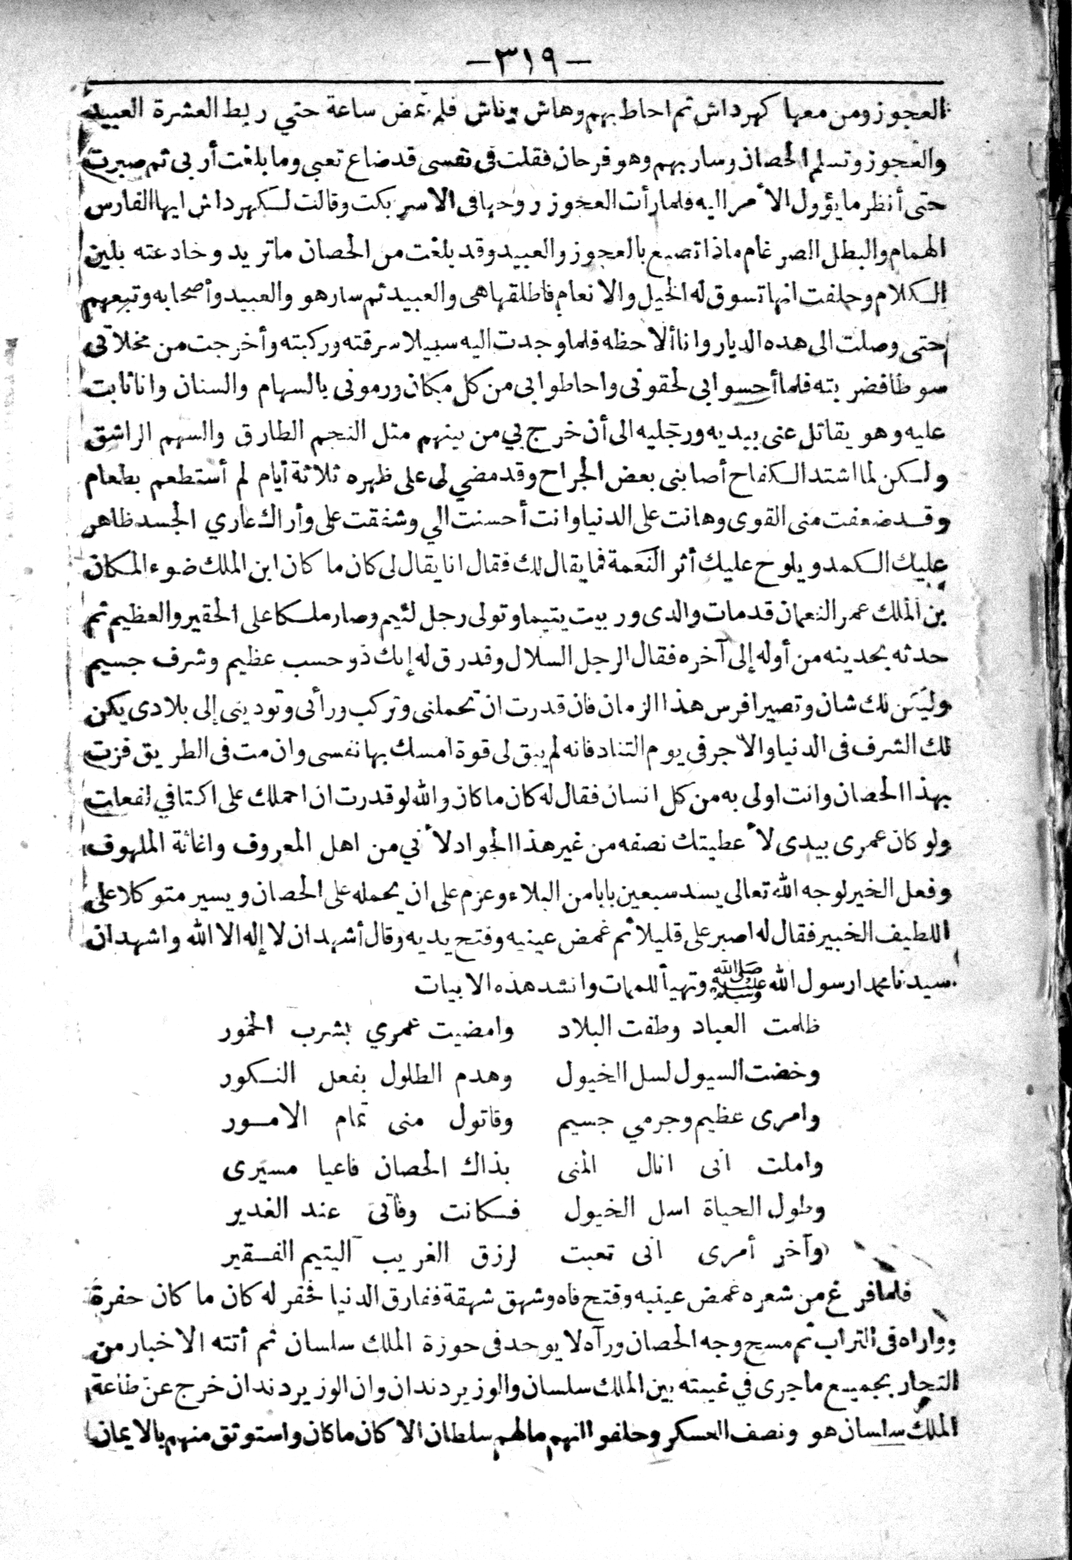 -٣١٩-
العجوز ومن معها كهرداش ثم احاط بهم وهاش وناش فلم تمض ساعة حتي ربط العشرة العبيد
والعجوز وتسلم الحصان وسار بهم وهو فرحان فقلت فى نفسى قد ضاع تعبي وما بلغت أربى ثم صبرت
حتى أنظر ما يؤول الأمر اليه فلما رأت العجوز روحها فى الاسر بكت وقالت لكهرداش ايها الفارس
الهمام والبطل الضرغام ماذا تصنع بالعجوز والعبيد وقد بلغت من الحصان ما تريد وخادعته بلين
الكلام وحلفت انها تسوق له الخيل والانعام فاطلقها هى والعبيد ثم سار هو والعبيد وأصحابه وتبعتهم
حتى وصلت الى هذه الديار وانا ألاحظه فلما وجدت اليه سبيلا سرقته وركبته وأخرجت من مخلاتى
سوطا فضربته فلما أحسوا بى لحقونى واحاطوا بى من كل مكان ورمونى بالسهام والسنان وانا ثابت
عليه وهو يقاتل عنى بيديه ورجليه الى أن خرج بي من بينهم مثل النجم الطارق والسهم الراشق
ولكن لما اشتد الكفاح أصابنى بعض الجراح وقد مضي لى على ظهره ثلاثة أيام لم أستطعم بطعام
وقد ضعفت منى القوى وهانت على الدنيا وانت أحسنت الي وشفقت على وأراك عاري الجسد ظاهر
عليك الكمد ويلوح عليك أثر النعمة فما يقال لك فقال انا يقال لى كان ما كان ابن الملك ضوء المكان
بن الملك عمر النعمان قد مات والدى وربيت يتيما وتولى رجل لئيم وصار ملكا على الحقير والعظيم ثم
حدثه بحديثه من أوله إلى آخره فقال الرجل السلال وقد رق له إنك ذو حسب عظيم وشرف جسيم
وليكن لك شان وتصير افرس هذا الزمان فان قدرت ان تحملنى وتركب ورأئى وتودينى إلى بلادى يكن
لك الشرف فى الدنيا والاجر في يوم التناد فانه لم يبق لى قوة امسك بها نفسى وان مت فى الطريق فزت
بهذا الحصان وانت اولى به من كل انسان فقال له كان ما كان والله لو قدرت ان احملك على اكتافي لفعلت
ولو كان عمرى بيدى لأعطيتك نصفه من غير هذا الجواد لأني من اهل المعروف واغاثة الملهوف
وفعل الخير لوجه الله تعالى يسد سبعين بابا من البلاء وعزم على ان يحمله على الحصان ويسير متوكلا على
اللطيف الخبير فقال له اصبر على قليلا ثم غمض عينيه وفتح يديه وقال أشهد ان لا إله الا الله واشهد ان
سيدنا محمدا رسول الله ﷺ وتهيأ للممات وانشد هذه الابيات
ظلمت العباد وطفت البلاد وامضيت عمري بشرب الخمور
وخضت السيول لسل الخيول وهدم الطلول بفعل النكور
وامرى عظيم وجرمي جسيم وقاتول منى تمام الامور
واملت انى انال المنى بذاك الحصان فاعيا مسيرى
وطول الحياة اسل الخيول فكانت وفاتى عند الغدير
وآخر أمرى انى تعبت لرزق الغريب اليتيم الفقير
فلما فرغ من شعره غمض عينيه وفتح فاه وشهق شهقة ففارق الدنيا فحفر له كان ما كان حفرة
وواراه فى التراب ثم مسح وجه الحصان ورآه لا يوجد في حوزة الملك سلسان ثم أتته الاخبار من
التجار بجميع ما جرى في غيبته بين الملك سلسان والوزير دندان وان الوزير دندان خرج عن طاعة
الملك سلسان هو ونصف العسكر وحلفوا انهم مالهم سلطان الا كان ما كان واستوثق منهم بالايمان